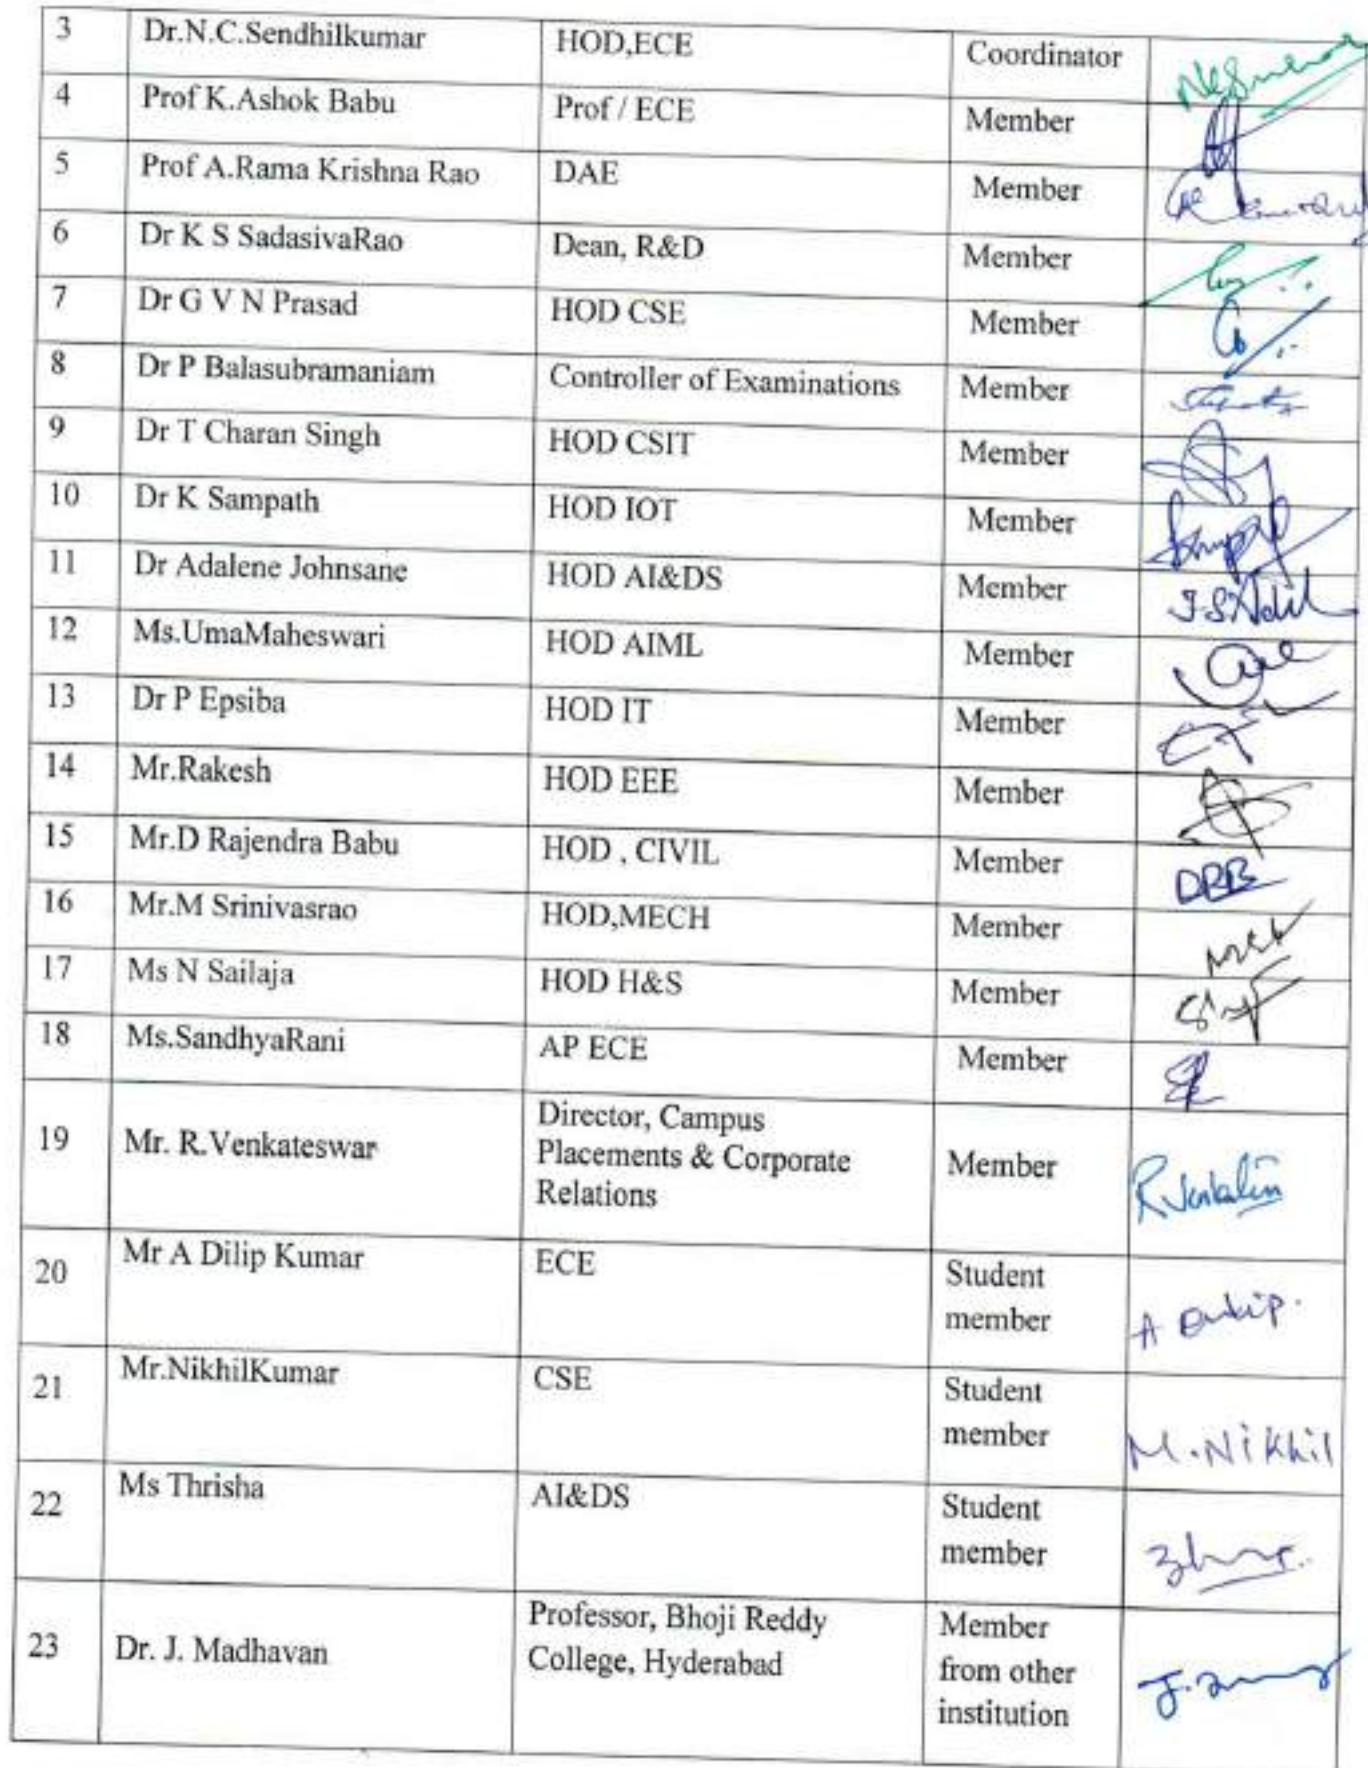 3 Dr.N.C.Sendhilkumar HOD,ECE Coordinator
4 Prof K.Ashok Babu Prof / ECE Member
5 Prof A.Rama Krishna Rao DAE Member
6 Dr K S SadasivaRao Dean, R&D Member
7 Dr G V N Prasad HOD CSE Member
8 Dr P Balasubramaniam Controller of Examinations Member
9 Dr T Charan Singh HOD CSIT Member
10 Dr K Sampath HOD IOT Member
11 Dr Adalene Johnsane HOD AI&DS Member
12 Ms.UmaMaheswari HOD AIML Member
13 Dr P Epsiba HOD IT Member
14 Mr.Rakesh HOD EEE Member
15 Mr.D Rajendra Babu HOD , CIVIL Member
16 Mr.M Srinivasrao HOD,MECH Member
17 Ms N Sailaja HOD H&S Member
18 Ms.SandhyaRani AP ECE Member
19 Mr. R.Venkateswar Director, Campus
Placements & Corporate
Relations Member
20 Mr A Dilip Kumar ECE Student
member
21 Mr.NikhilKumar CSE Student
member M.Nikhil
22 Ms Thrisha AI&DS Student
member
23 Dr. J. Madhavan Professor, Bhoji Reddy
College, Hyderabad Member
from other
institution